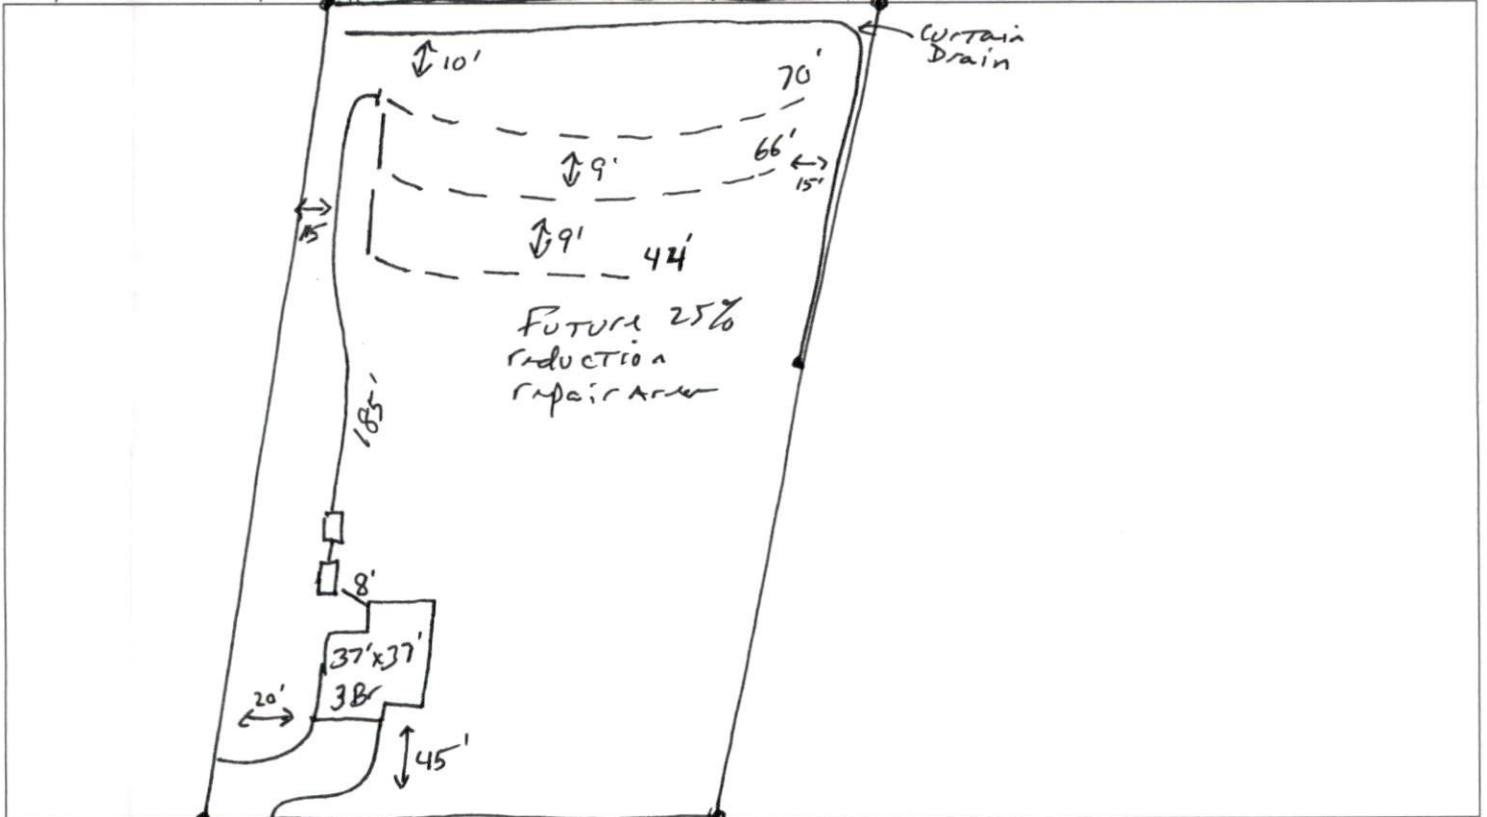 Curtain
Drain
10'
70'
66'
9'
15'
15
9'
44'
Future 25%
reduction
repair Area
185'
8'
37'x37'
3Br
20'
45'